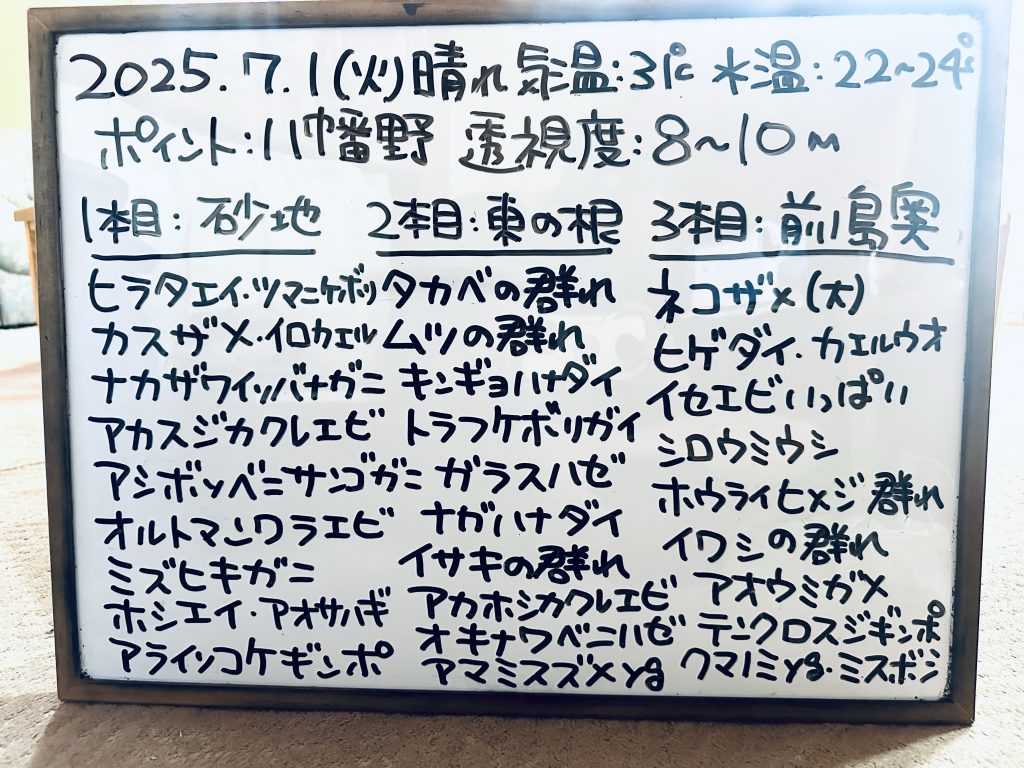 2025.7.1(火)晴れ 気温:31℃ 水温:22~24℃
ポイント:八幡野 透視度:8~10m
1本目:砂地
ヒラタエイ・ツマニケボリ
カスザメ・イロカエル
ナカザワイッバナガニ
アカスジカクレエビ
アシボソベニサンゴガニ
オルトマンワラエビ
ミズヒキガニ
ホシエイ・アオサハギ
アライソコケギンポ
2本目:東の根
タカベの群れ
ムツの群れ
キンギョハナダイ
トラフケボリガイ
ガラスハゼ
ナガハナダイ
イサキの群れ
アカホシカクレエビ
オキナワベニハゼ
アマミスズメyg
3本目:前川島奥
ネコザメ(大)
ヒゲダイ・カエルウオ
イセエビいっぱい
シロウミウシ
ホウライヒメジ群れ
イワシの群れ
アオウミガメ
テンクロスジギンポ
クマノミyg・ミスボシ